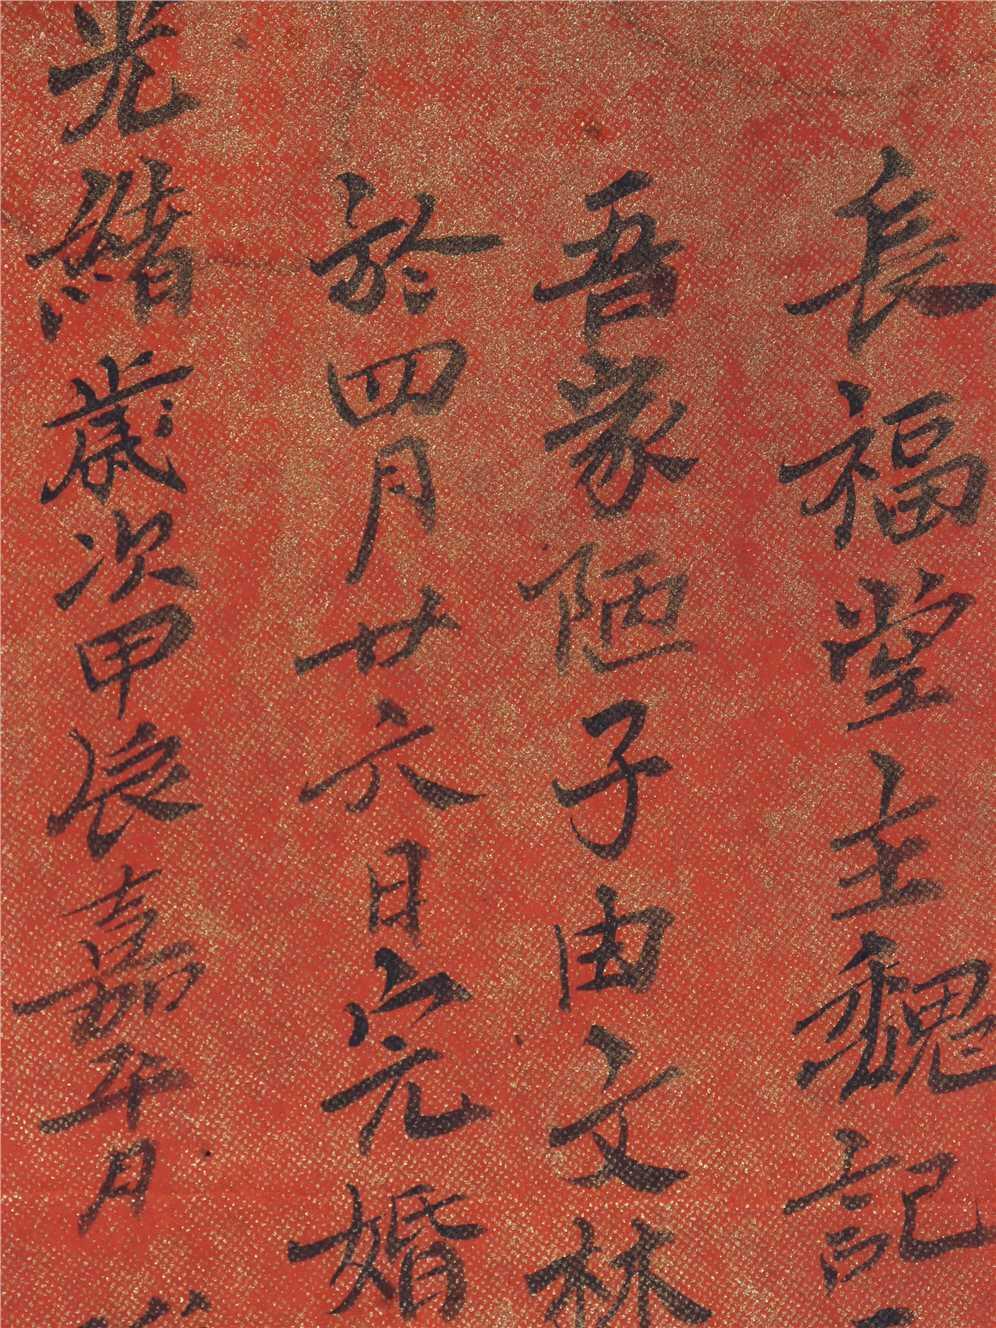 長福堂主魏記
吾家陋子由文林
於四月廿六日完婚
光緒歲次甲辰嘉平月